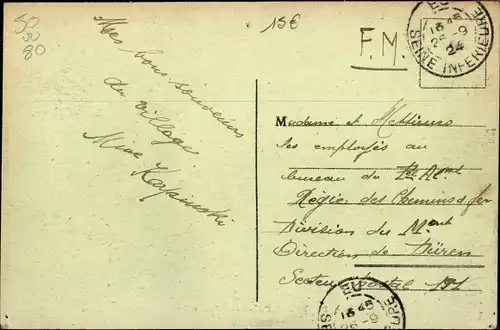 50
30
80
15€
F.M.
EU
13 45
26-9
24
SEINE INFERIEURE
Mes bons souvenirs
du village
Mme Kapinski
Madame et Messieurs
les employés au
bureau du
Régie des Chemins de fer
Division du
Direction de Düren
Secteur postal 151
EU
13 45
26-9